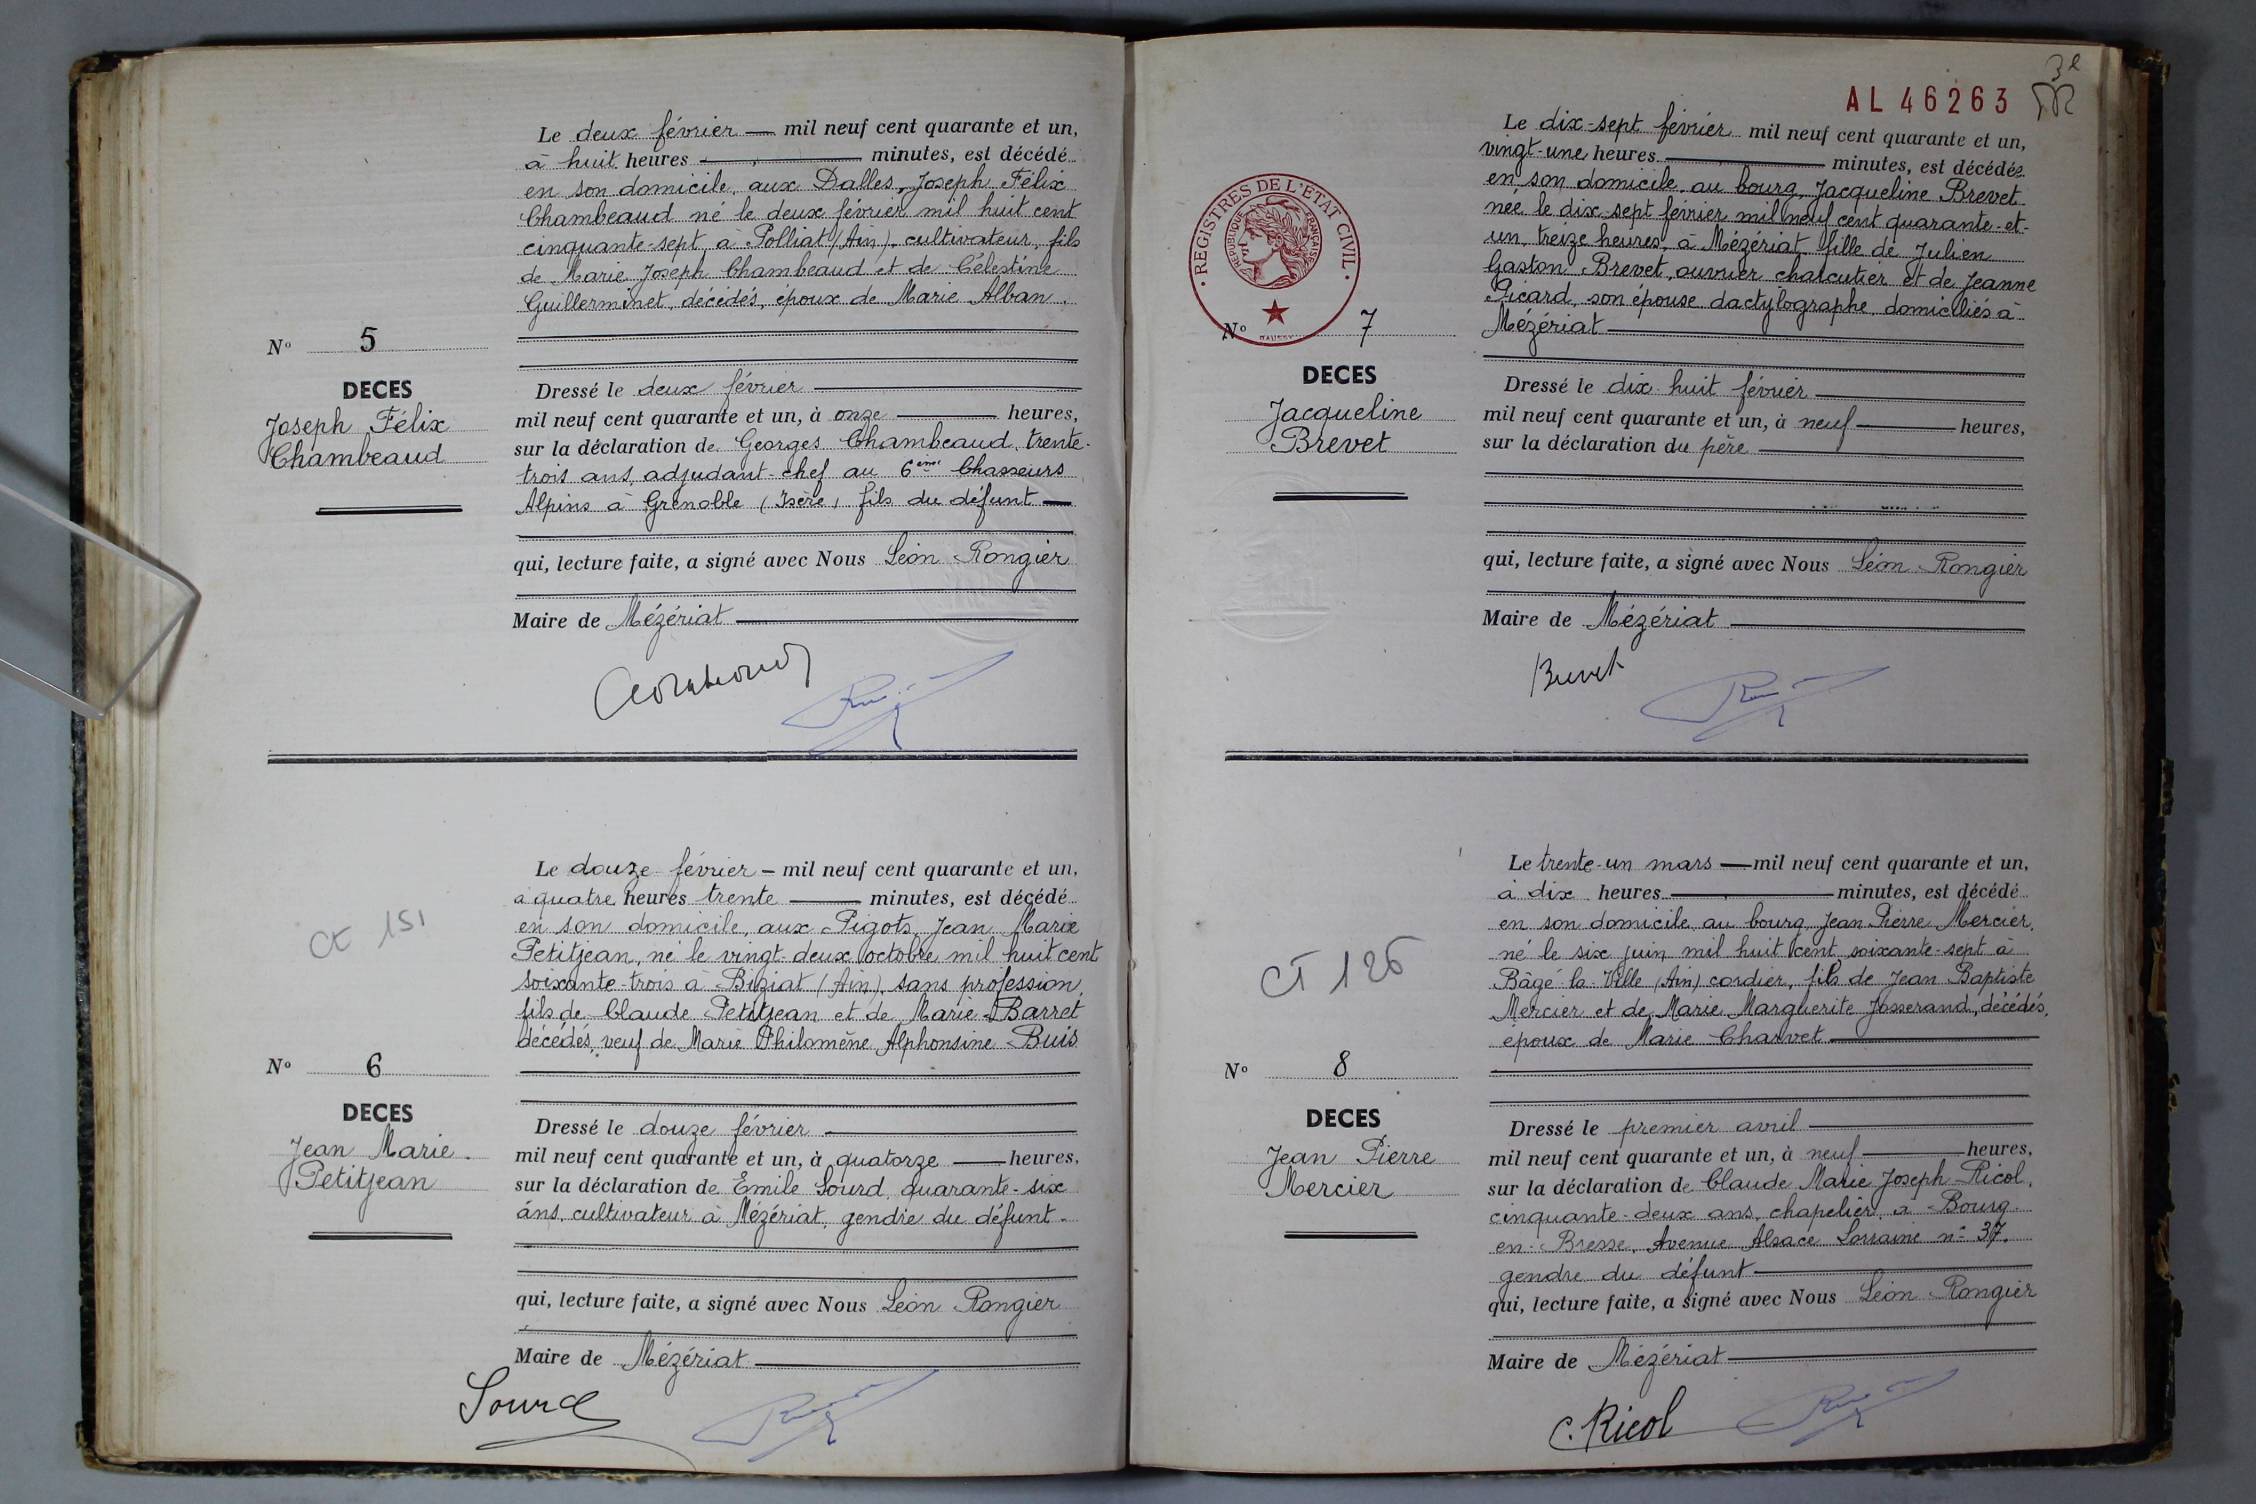 Le deux février — mil neuf cent quarante et un,
à huit heures — minutes, est décédé
en son domicile, aux Dalles, Joseph Félix
Chambeaud né le deux février mil huit cent
cinquante-sept, à Polliat (Ain), cultivateur, fils
de Marie Joseph Chambeaud et de Célestine
Guillerminet, décédés, époux de Marie Alban.
N° 5
DECES
Joseph Félix
Chambeaud
Dressé le deux février —
mil neuf cent quarante et un, à onze — heures,
sur la déclaration de Georges Chambeaud, trente-
trois ans, adjudant-chef au 6ème Chasseurs
Alpins à Grenoble (Isère) fils du défunt —
qui, lecture faite, a signé avec Nous Léon Rongier
Maire de Mézériat —
Le douze février — mil neuf cent quarante et un,
à quatre heures trente — minutes, est décédé
en son domicile, aux Pigots, Jean Marie
Petitjean, né le vingt-deux octobre mil huit cent
soixante-trois à Biziat (Ain), sans profession,
fils de Claude Petitjean et de Marie Barret
décédés, veuf de Marie Philomène Alphonsine Buis
Ct 151
N° 6
DECES
Jean Marie
Petitjean
Dressé le douze février —
mil neuf cent quarante et un, à quatorze — heures,
sur la déclaration de Emile Sourd, quarante-six
ans, cultivateur à Mézériat, gendre du défunt -
qui, lecture faite, a signé avec Nous Léon Rongier
Maire de Mézériat —
Sourd
AL 46263
Le dix-sept février mil neuf cent quarante et un,
vingt-une heures — minutes, est décédée
en son domicile au bourg, Jacqueline Brevet
née le dix-sept février mil neuf cent quarante-et-
un, treize heures, à Mézériat fille de Julien
Gaston Brevet, ouvrier charcutier et de Jeanne
Picard, son épouse dactylographe, domiciliés à
Mézériat —
REGISTRES DE L'ÉTAT CIVIL
RÉPUBLIQUE FRANÇAISE
N° 7
DECES
Jacqueline
Brevet
Dressé le dix-huit février —
mil neuf cent quarante et un, à neuf — heures,
sur la déclaration du père —
qui, lecture faite, a signé avec Nous Léon Rongier
Maire de Mézériat —
Brevet
Le trente-un mars — mil neuf cent quarante et un,
à dix heures — minutes, est décédé
en son domicile au bourg, Jean Pierre Mercier,
né le six juin mil huit cent soixante-sept à
Bâgé-la-Ville (Ain) cordier, fils de Jean Baptiste
Mercier et de Marie Marguerite Josserand, décédés,
époux de Marie Charvet —
CT 126
N° 8
DECES
Jean Pierre
Mercier
Dressé le premier avril —
mil neuf cent quarante et un, à neuf — heures,
sur la déclaration de Claude Marie Joseph Ricol,
cinquante-deux ans, chapelier, à Bourg-
en-Bresse, Avenue Alsace Lorraine n° 37,
gendre du défunt —
qui, lecture faite, a signé avec Nous Léon Rongier
Maire de Mézériat —
C. Ricol